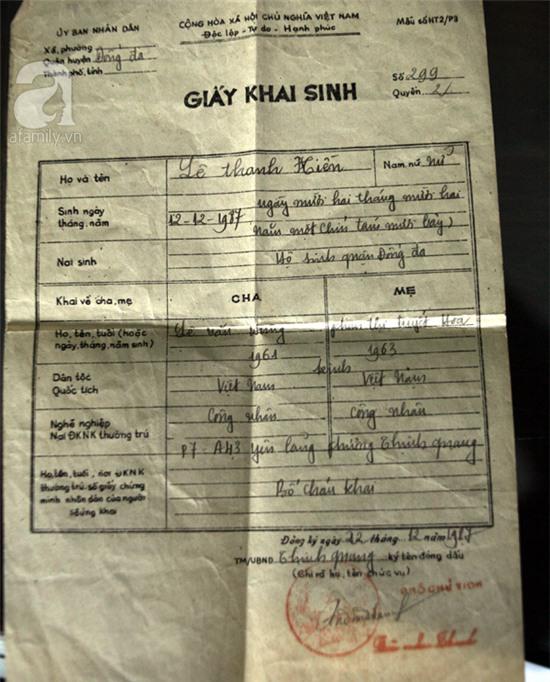 ỦY BAN NHÂN DÂN
Xã, phường
Quận huyện Đống đa
Thành phố, tỉnh
CỘNG HÒA XÃ HỘI CHỦ NGHĨA VIỆT NAM
Độc lập - Tự do - Hạnh phúc
Mẫu số HT2/P3
a
afamily.vn
GIẤY KHAI SINH
Số 299
Quyển
Họ và tên Lê thanh Hiền Nam nữ nữ
Sinh ngày tháng, năm 12-12-1987 ngày mười hai tháng mười hai
năm một chín tám mười bảy)
Nơi sinh Hộ sinh quận Đống đa
Khai về cha, mẹ CHA MẸ
Họ, tên, tuổi (hoặc Lê văn tuyết Hoa
ngày, tháng, năm sinh) 1961 1963
Dân tộc kinh
Quốc tịch Việt Nam Việt Nam
Nghề nghiệp công nhân công nhân
Nơi ĐKNK thường trú P7 - A43 yên lãng phường thịnh quang
Họ, tên, tuổi, nơi ĐKNK
thường trú số giấy chứng
minh nhân dân của người
đứng khai
Bố cháu khai
Đăng ký ngày 22 tháng 12 năm 1987
TM/UBND thịnh quang ký tên đóng dấu
(Ghi rõ họ, tên chức vụ)
PHÓ CHỦ TỊCH